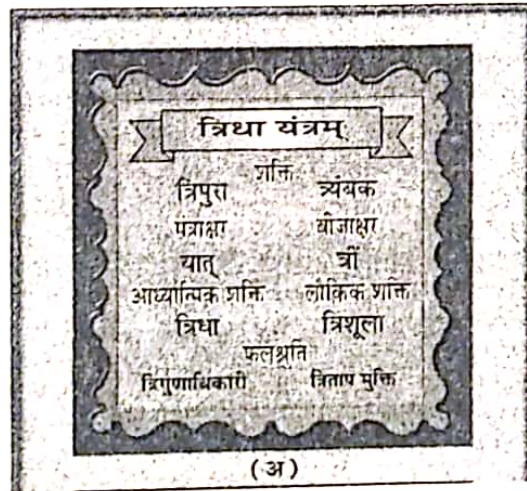 त्रिधा यंत्रम्
शक्ति
त्रिपुरा त्र्यंबक
पत्राक्षर बीजाक्षर
यात् त्रीं
आध्यात्मिक शक्ति लौकिक शक्ति
त्रिधा त्रिशूला
फलश्रुति
त्रिगुणाधिकारी त्रिताप मुक्ति
(अ)